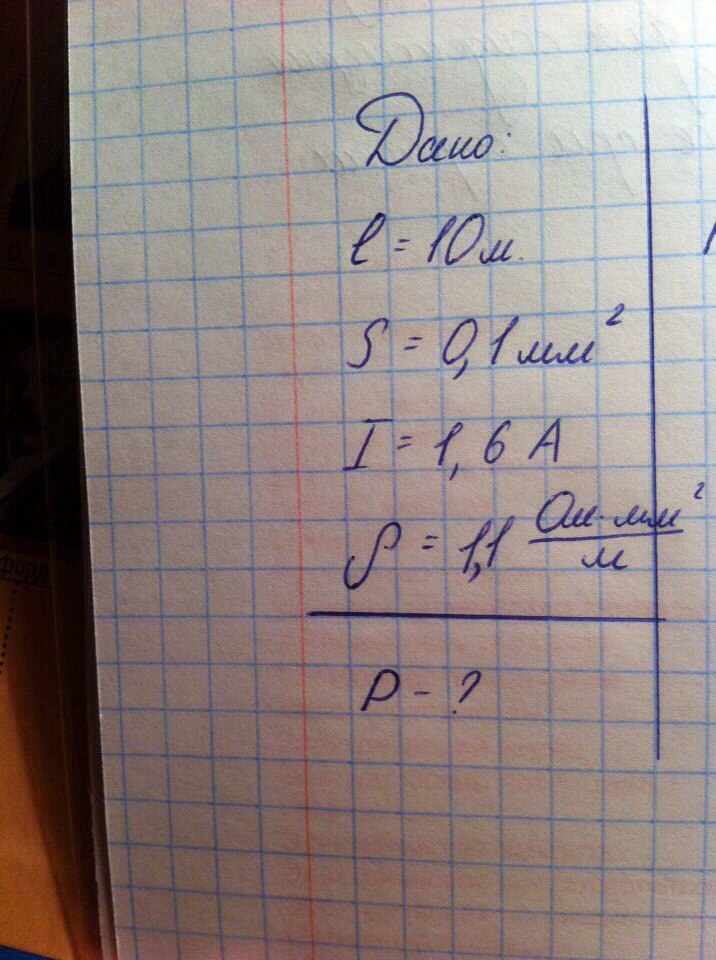 Дано:
l = 10 м.
S = 0,1 мм²
I = 1,6 А
ρ = 1,1 Ом·мм²/м
P - ?